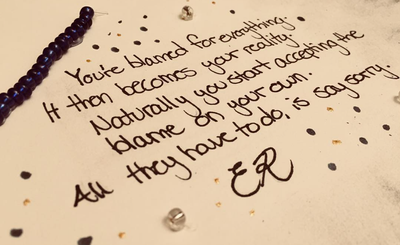 You're blamed for everything.
It then becomes your reality.
Naturally you start accepting the
blame on your own.
All they have to do, is say sorry.
ER